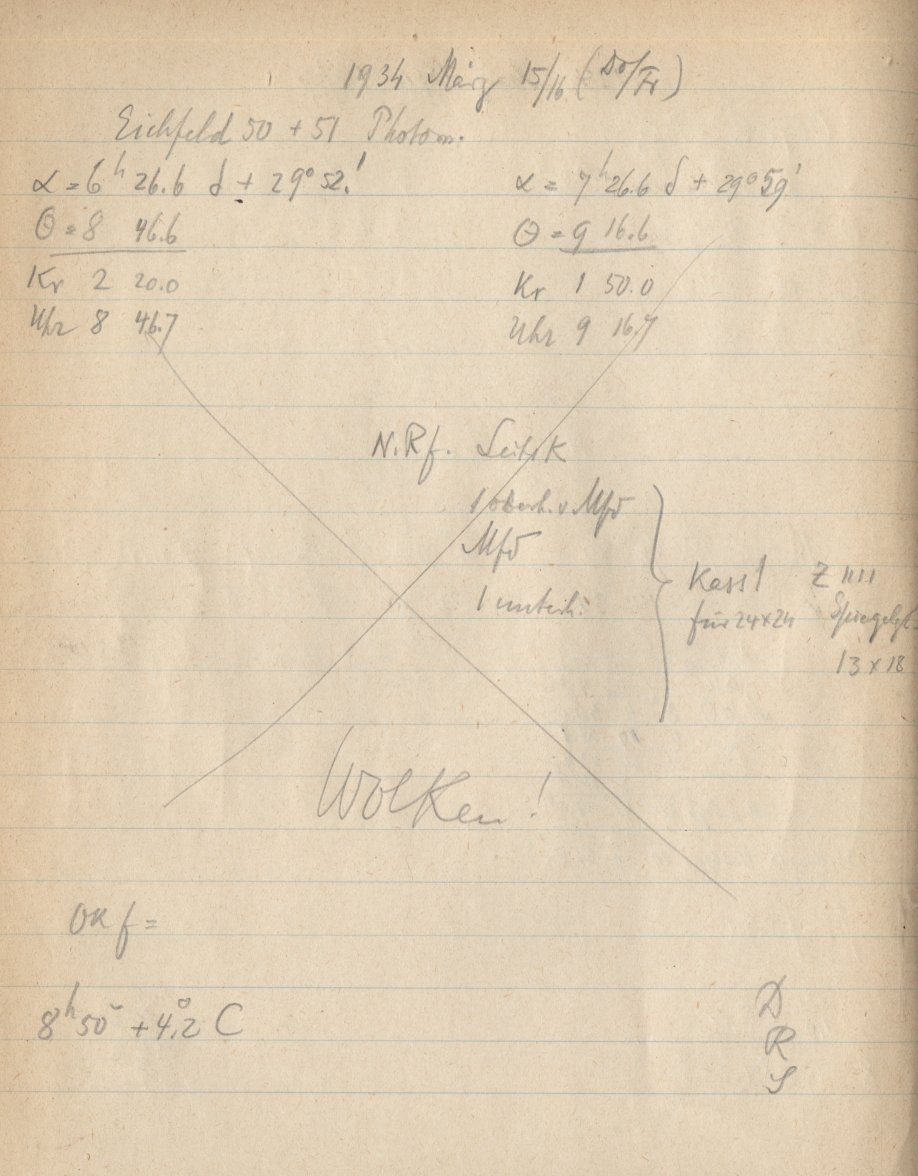 1934 März 15/16 (Do/Fr)
Eichfeld 50 + 51 Photom.
α = 6ʰ 26.6 δ + 29° 52.'
Θ = 8 46.6
Kr 2 20.0
Uhr 8 46.7
α = 7ʰ 26.6 δ + 29° 59'
Θ = 9 16.6
Kr 1 50.0
Uhr 9 16.7
N.Rf.
1 oberh. v. Mfd
Mfd
1 unterh.
Kass 1
für 24x24
Z
Spiegelgl.
13 x 18
Wolken!
f =
8ʰ 50 + 4°.2 C
D
R
S